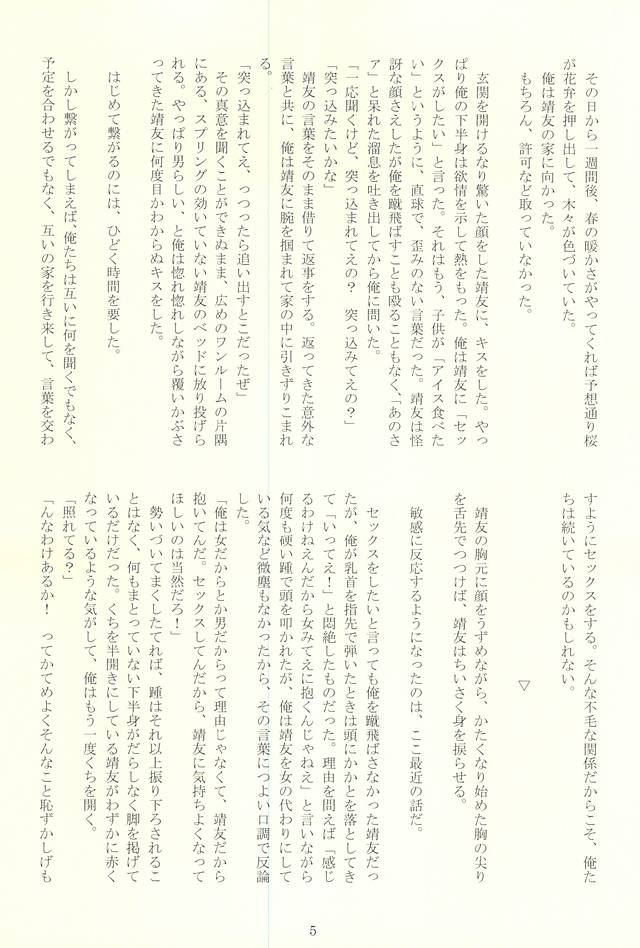 その日から一週間後、春の暖かさがやってくれば予想通り桜
が花弁を押し出して、木々が色づいていた。
俺は靖友の家に向かった。
もちろん、許可など取っていなかった。
玄関を開けるなり驚いた顔をした靖友に、キスをした。やっ
ぱり俺の下半身は欲情を示して熱をもった。俺は靖友に「セッ
クスがしたい」と言った。それはもう、子供が「アイス食べた
い」というように、直球で、歪みのない言葉だった。靖友は怪
訝な顔さえしたが俺を蹴飛ばすことも殴ることもなく、「あのさ
ァ」と呆れた溜息を吐き出してから俺に問いた。
「一応聞くけど、突っ込まれてえの？　突っ込みてえの？」
「突っ込みたいかな」
靖友の言葉をそのまま借りて返事をする。返ってきた意外な
言葉と共に、俺は靖友に腕を掴まれて家の中に引きずりこまれ
る。
「突っ込まれてえ、っつったら追い出すとこだったぜ」
その真意を聞くことができぬまま、広めのワンルームの片隅
にある、スプリングの効いていない靖友のベッドに放り投げら
れる。やっぱり男らしい、と俺は惚れ惚れしながら覆いかぶさ
ってきた靖友に何度目かわからぬキスをした。
はじめて繋がるのには、ひどく時間を要した。
しかし繋がってしまえば、俺たちは互いに何を聞くでもなく、
予定を合わせるでもなく、互いの家を行き来して、言葉を交わ
すようにセックスをする。そんな不毛な関係だからこそ、俺た
ちは続いているのかもしれない。
▽
靖友の胸元に顔をうずめながら、かたくなり始めた胸の尖り
を舌先でつつけば、靖友はちいさく身を捩らせる。
敏感に反応するようになったのは、ここ最近の話だ。
セックスをしたいと言っても俺を蹴飛ばさなかった靖友だっ
たが、俺が乳首を指先で弾いたときは頭にかかとを落としてき
て「いってえ！」と悶絶したものだった。理由を問えば「感じ
るわけねえんだから女みてえに抱くんじゃねえ」と言いながら
何度も硬い踵で頭を叩かれたが、俺は靖友を女の代わりにして
いる気など微塵もなかったから、その言葉につよい口調で反論
した。
「俺は女だからとか男だからって理由じゃなくて、靖友だから
抱いてんだ。セックスしてんだから、靖友に気持ちよくなって
ほしいのは当然だろ！」
勢いづいてまくしたてれば、踵はそれ以上振り下ろされるこ
とはなく、何もまとっていない下半身がだらしなく脚を掲げて
いるだけだった。くちを半開きにしている靖友がわずかに赤く
なっているような気がして、俺はもう一度くちを開く。
「照れてる？」
「んなわけあるか！　ってかてめよくそんなこと恥ずかしげも
5